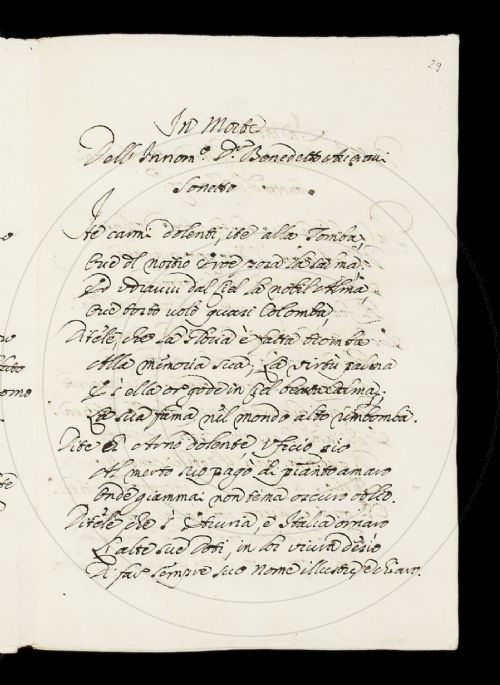 29
In Morte
Dell' Innom.º D.r Benedetto
Sonetto
Ite carmi dolenti, ite alla Tomba,
Ove del nostro Eroe posa la salma;
Ed udravvi dal Ciel la nobil Alma,
Ove tosto volò quasi Colomba,
Ditele, che la Gloria è fatta tromba
Alla memoria sua, La virtù palma
E s'ella or gode in Ciel beata calma,
La sua fama nel mondo alto rimbomba.
Dite ch' Arno dolente, Uficio pio
Al merto suo pagò di pianto amaro
Onde giammai non tema oscuro oblio.
Ditele che s' Etruria, e Italia ornaro
L'alte sue Doti, in lor viva desìo
Di far sempre suo nome illustre, e chiaro.